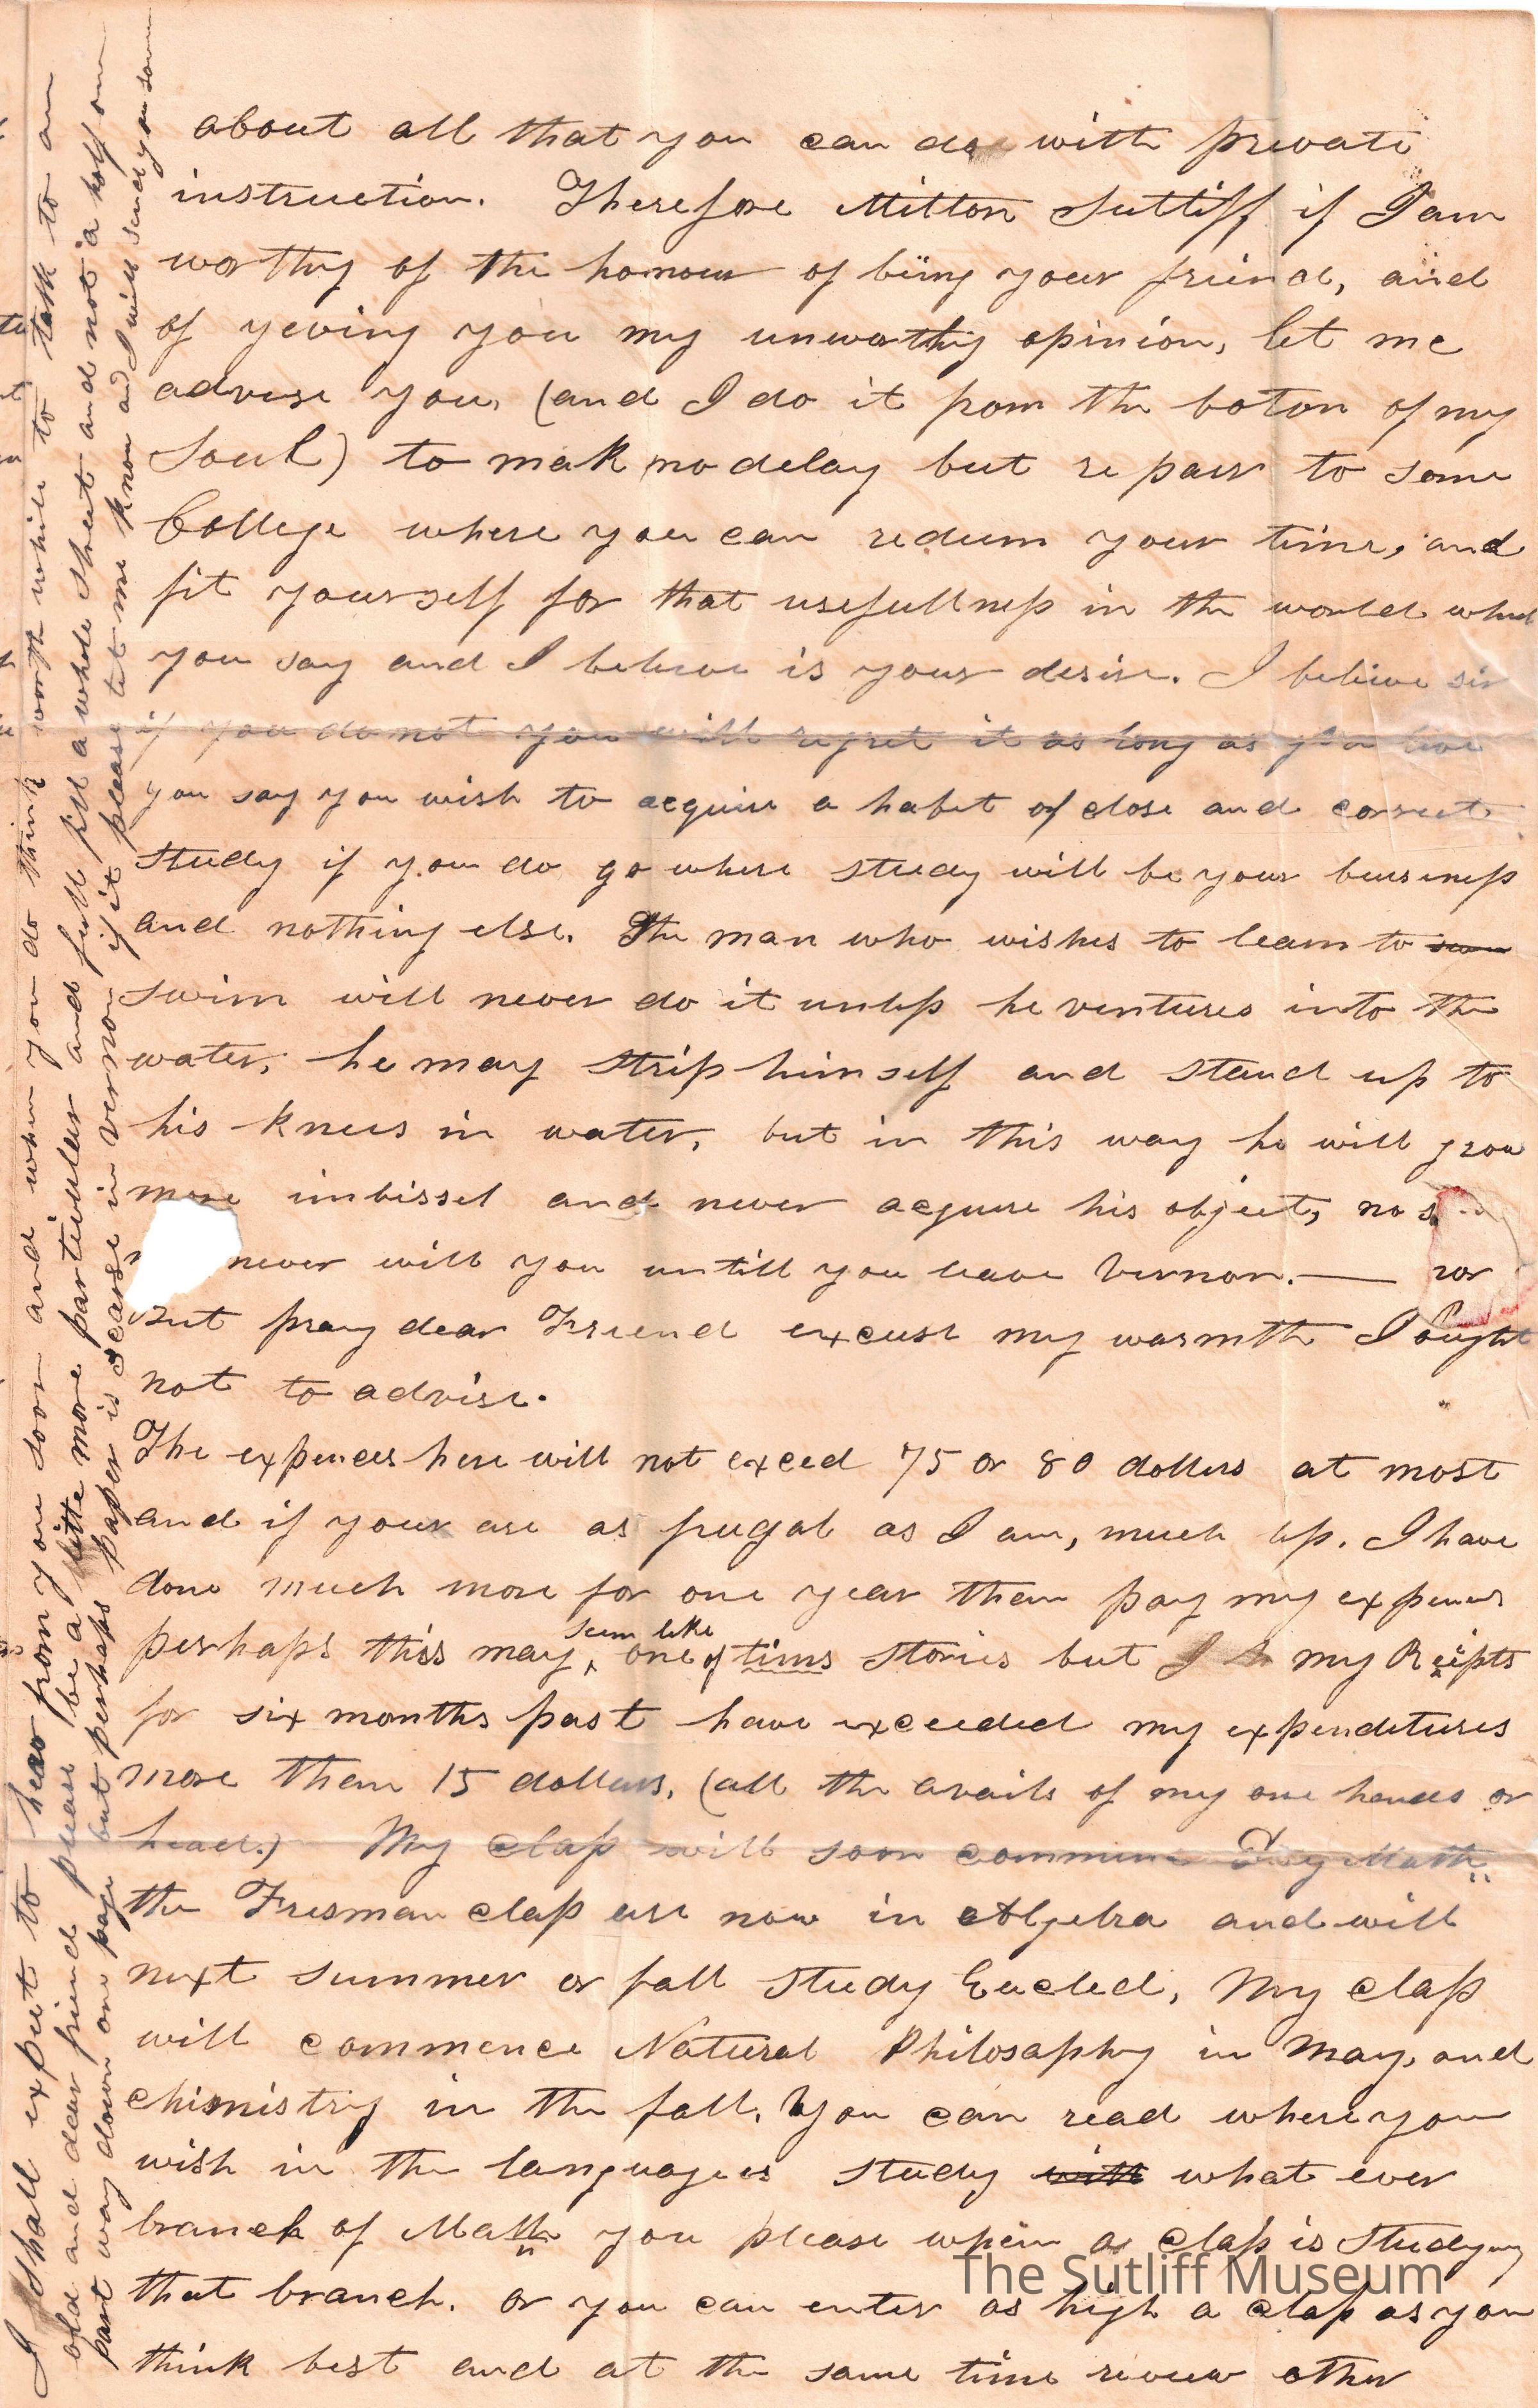 about all that you can do with private
instruction. Therefore Milton Sutliff if I am
worthy of the honour of biing your friend, and
of yeving you my unworthy opinion, let me
advise you, (and I do it from the botom of my
Soul) to mak no delay but repair to some
College where you can redeem your time, and
fit yourself for that usefullness in the world which
you say and I believe is your desire. I believe sir
if you do not you will regret it as long as you live
you say you wish to acquire a habit of close and correct
study if you do go where study will be your buisiness
and nothing else. The man who wishes to learn to
swim will never do it unless he ventures into the
water, he may strip himself and stand up to
his knees in water, but in this way he will grow
more imbissel and never acquire his object, no s
never will you untill you leave Vernon. —
But pray dear Friend excuse my warmth I ought
not to advise.
The expences here will not exceed 75 or 80 dollers at most
and if your are as frugal as I am, much less. I have
done much more for one year then pay my expences
perhaps this may seem like one of tims stories but I my Receipts
for six months past have exceeded my expenditures
more then 15 dollars, (all the avails of my one hands or
head.) My class will soon commence Day Math
the Fresman class are now in Algebra and will
next summer or fall study Eucled, My class
will commence Natural Philosaphy in May, and
chimistry in the fall. You can read where you
wish in the languagees study with what ever
branch of Math you please when a class is studying
that branch. or you can enter as high a class as you
think best and at the same time review other
I shall expect to hear from you soon and when you do think worth while to talk to an
old and dear friend please be a little more particuler and full fill a whole sheat and not a half one
part way down one page but perhaps paper is scarse in vernon if it please let me know and I will send you some
The Sutliff Museum